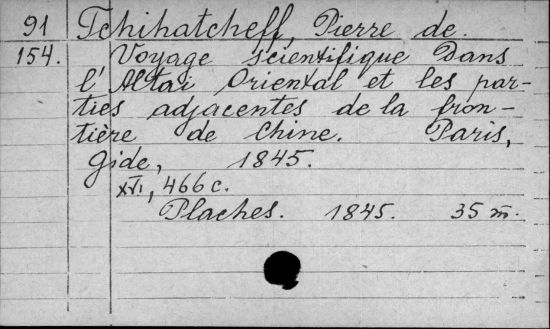 91 Tchihatcheff, Pierre de.
154. Voyage scientifique Dans
l'Altaï Oriental et les par-
ties adjacentes de la fron-
tière de Chine. Paris,
Gide, 1845.
XVI, 466 c.
Plaches. 1845. 35 m.